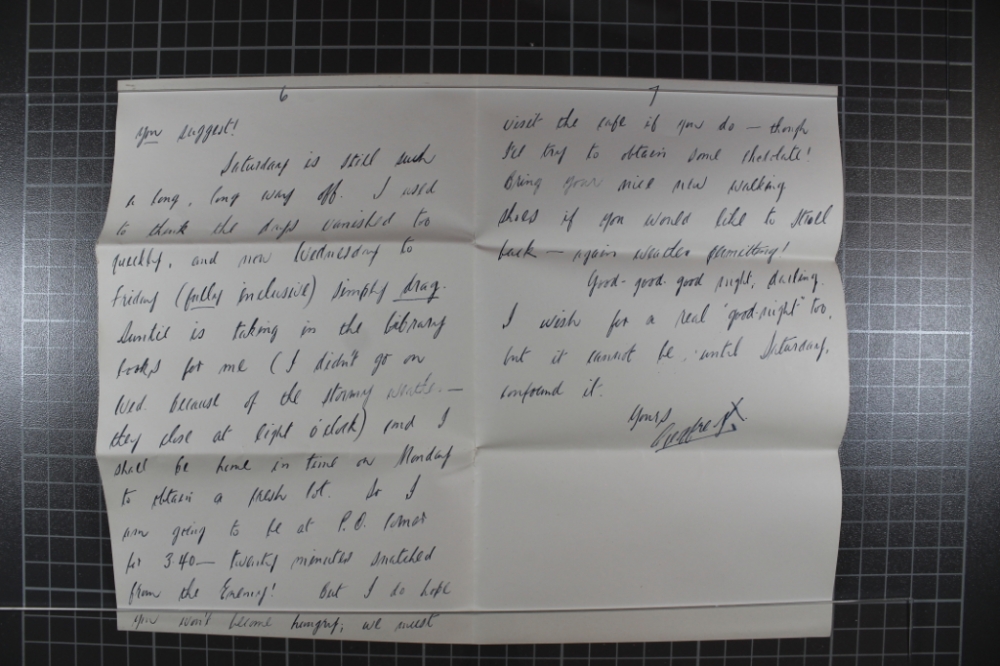 6
you suggest!
Saturday is still such
a long, long way off. I used
to think the days vanished too
quickly, and now Wednesday to
Friday (fully inclusive) simply drag.
Auntie is taking in the library
books for me (I didn't go on
Wed. because of the stormy weather. —
they close at eight o'clock) and I
shall be home in time on Monday
to obtain a fresh lot. So I
am going to be at P.O. corner
for 3.40 — twenty minutes snatched
from the Enemy! But I do hope
you won't become hungry; we must
7
visit the cafe if you do — though
I'll try to obtain some chocolate!
Bring your nice new walking
shoes if you would like to stroll
back — again weather permitting!
Good-good-good night, darling.
I wish for a real "good-night" too,
but it cannot be, until Saturday,
confound it.
Yours
Geoffrey X.